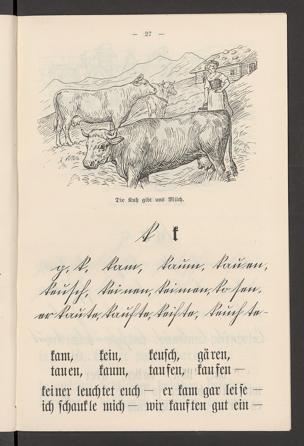 — 27 —
Die Kuh gibt uns Milch.
k k
g, k. kam, kaum, kauen,
keusch, keinen, keimen, kosen,
er kaute, kaufte, keifte, keuchte-
kam, kein, keusch, gären,
tauen, kaum, taufen, kaufen —
keiner leuchtet euch — er kam gar leise —
ich schaukle mich — wir kauften gut ein —